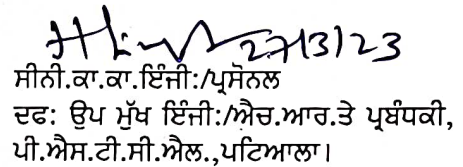 27/3/23
ਸੀਨੀ.ਕਾ.ਕਾ.ਇੰਜੀ:/ਪ੍ਰਸੋਨਲ
ਦਫ: ਉਪ ਮੁੱਖ ਇੰਜੀ:/ਐਚ.ਆਰ.ਤੇ ਪ੍ਰਬੰਧਕੀ,
ਪੀ.ਐਸ.ਟੀ.ਸੀ.ਐਲ.,ਪਟਿਆਲਾ।